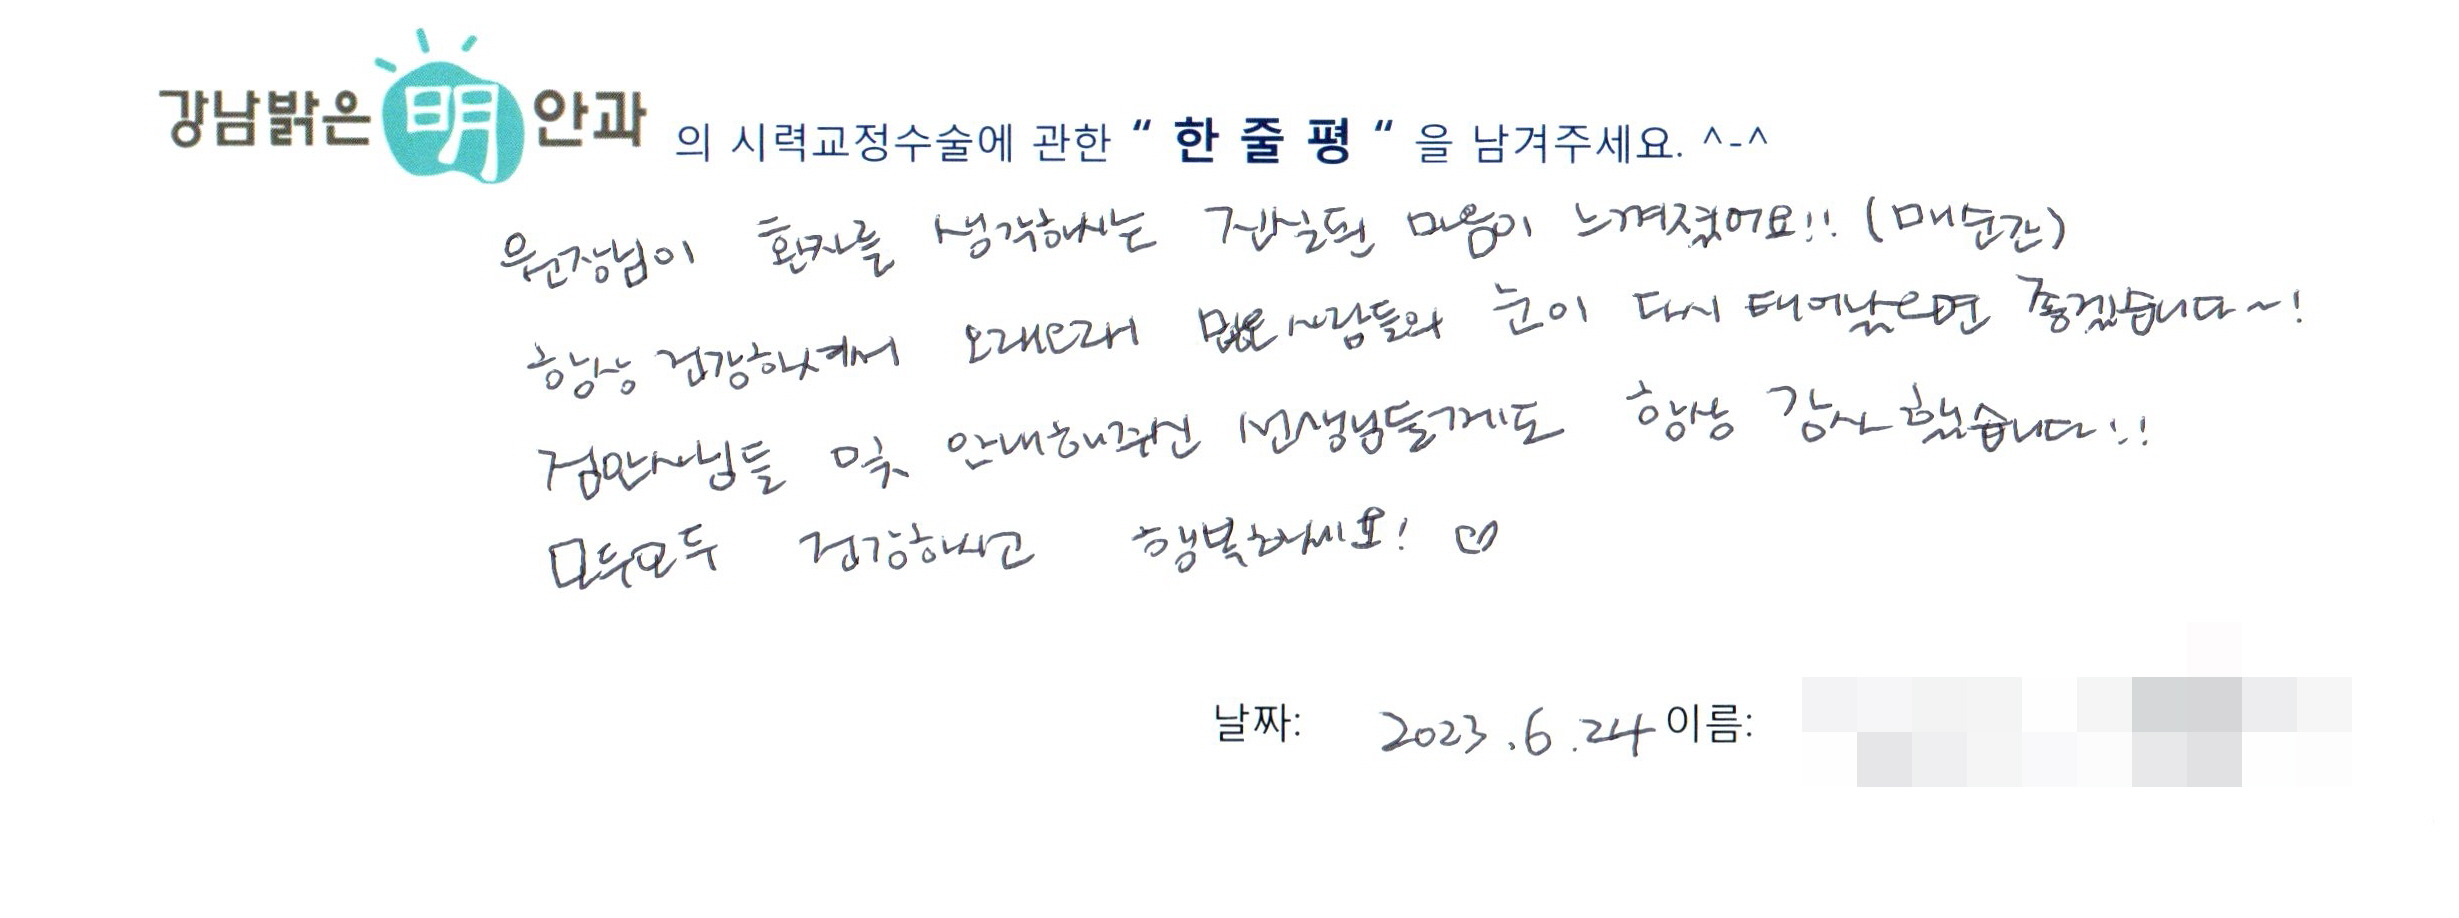 강남밝은 明 안과 의 시력교정수술에 관한 “ 한 줄 평 “ 을 남겨주세요. ^-^
원장님이 환자를 생각하시는 진실된 마음이 느껴졌어요!! (매순간)
항상 건강하셔서 오래오래 많은 사람들의 눈이 다시 태어났으면 좋겠습니다~!
검안사님들 및 안내해주신 선생님들께도 항상 감사했습니다!!
모두모두 건강하시고 행복하세요! ♡
날짜: 2023.6.24 이름: